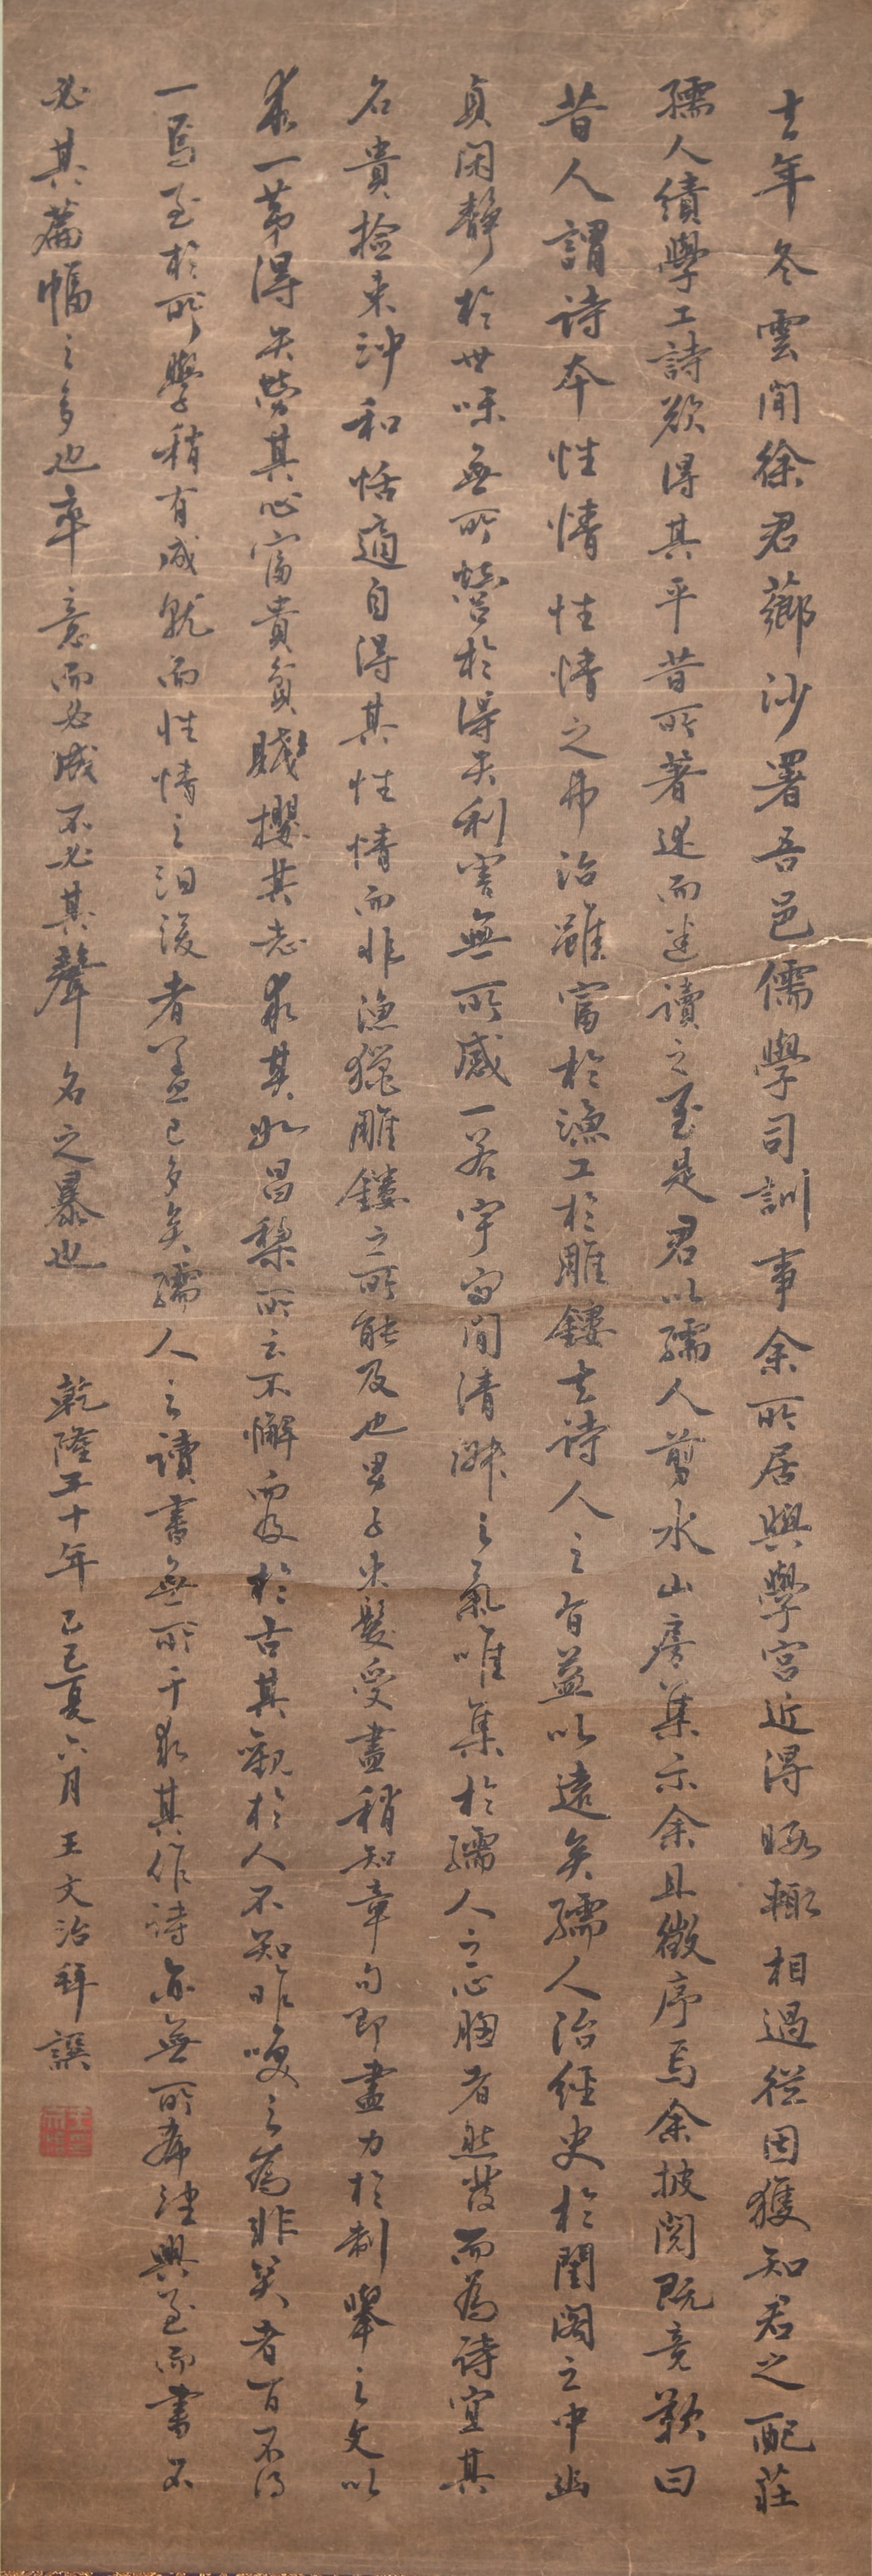 去年冬雲間徐君薌沙署吾邑儒學司訓事余所居與學宮近得暇輒相過從因獲知君之配莊
孺人績學工詩欲得其平昔所著述而進讀之至是君以孺人剪水山房集示余且徵序焉余披閱既竟歎曰
昔人謂詩本性情性情之弗治雖富於漁工於雕鏤去詩人之旨益以遠矣孺人治經史於閨閤之中幽
貞閑靜於世味無所營於得失利害無所慼一若宇宙間清淑之氣唯集於孺人之心胸者然發而為詩宜其
名貴撿束沖和恬適自得其性情而非漁獵雕鏤之所能及也男子束髮受書稍知章句即盡力於制舉之文以
求一第得失勞其心富貴貧賤攖其志求其如昌黎所云不懈而及於古其觀於人不知非笑之為非笑者百不得
一焉至於所學稍有成就而性情之汩沒者蓋已多矣孺人之讀書無所干求其作詩亦無所希注興至而書不
必其篇幅之多也率意而必成不必其聲名之暴也 乾隆五十年乙巳夏六月王文治拜譔